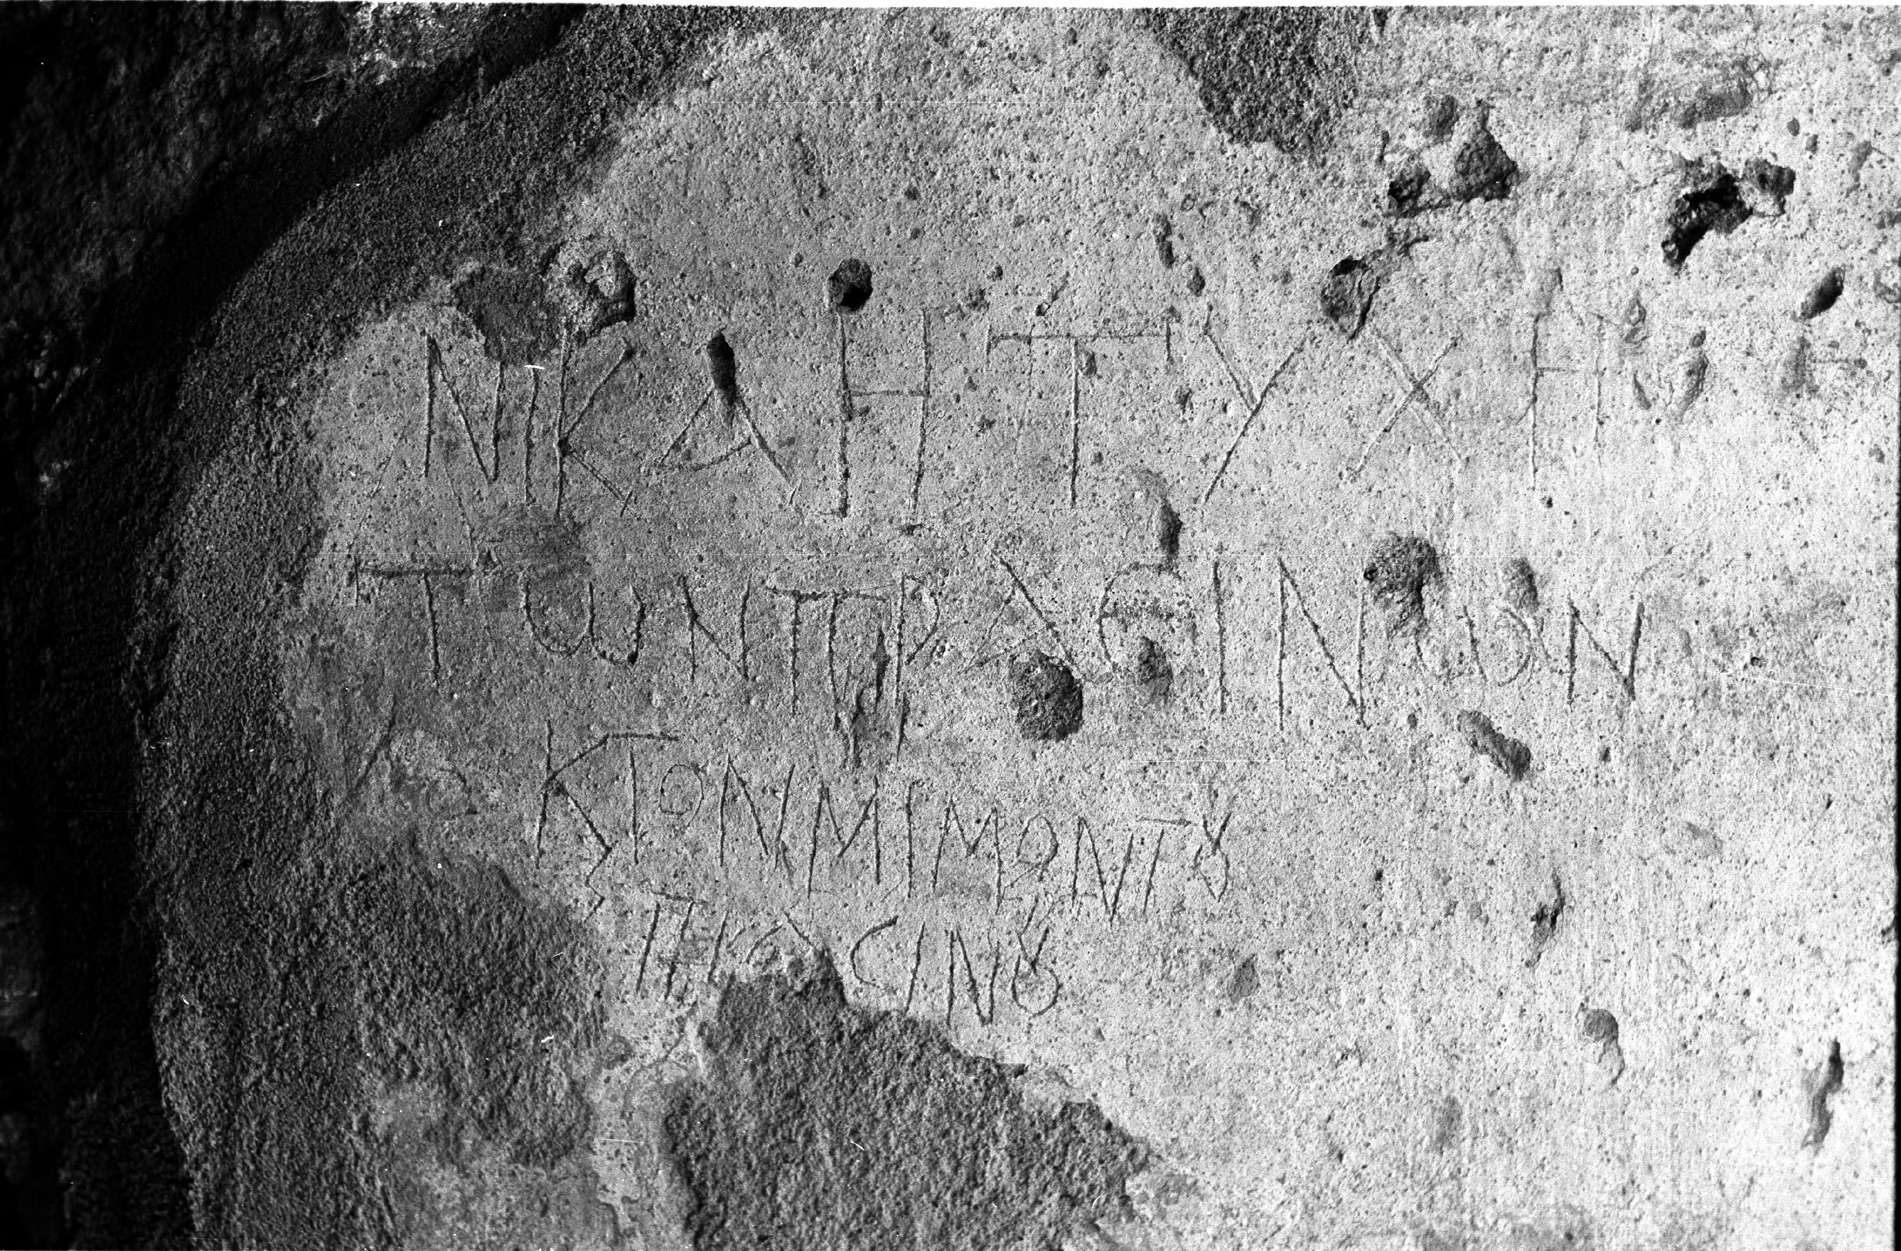 ΝΙΚΑ Η ΤΥΧΗ
ΤΩΝ ΠΡΑϹΙΝΩΝ
Κ ΤΟΝ ΜΙΜΟΝ ΤȢ
ΠΡΑϹΙΝȢ